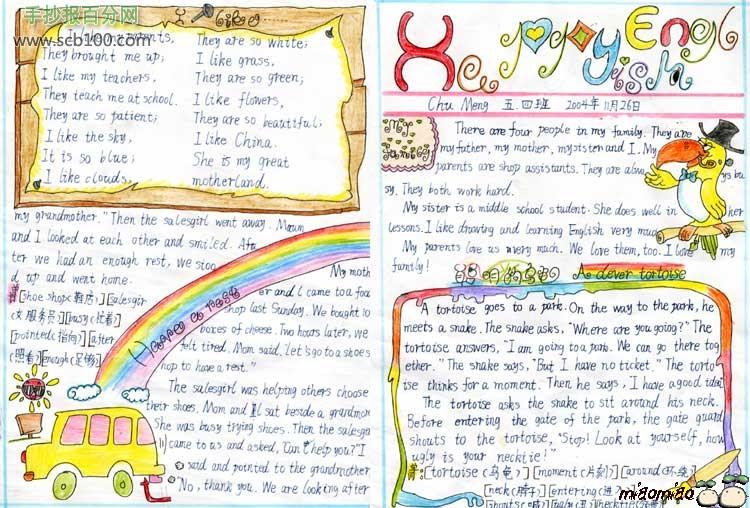 手抄报百分网
www.scb100.com
I Like
I like my parents,
They brought me up;
I like my teachers,
They teach me at school.
They are so patient;
I like the sky,
It is so blue;
I like clouds,
They are so white;
I like grass,
They are so green;
I like flowers,
They are so beautiful;
I like China.
She is my great
motherland.
my grandmother." Then the salesgirl went away. Mum
and I looked at each other and smiled. Af
ter we had an enough rest, we stoo
d up and went home.
[shoe shop(鞋店)][salesgirl
(女服务员)][busy(忙着)]
[pointed(指向)][after
(照看)][enough(足够)]
Have a rest
My moth
er and I came to a foo
shop last Sunday. We bought 10
boxes of cheese. Two hours later, we
felt tired. Mom said, Let's go to a shoes
hop to have a rest."
The salesgirl was helping others choose
their shoes. Mom and I sat beside a grandmom
She was busy trying shoes. Then the salesgi
came to us and asked, "Can I help you?" I
said and pointed to the grandmother
"No, thank you. We are looking after
Happy English
Chu Meng 五四班 2004年11月26日
My
family
There are four people in my family. They are
my father, my mother, my sister and I. My
parents are shop assistants. They are alway s bu
sy. They both work hard.
My sister is a middle school student. She does well in her
lessons. I like drawing and learning English very much
My parents love us very much. We love them, too. I love my
family!
聪明的乌龟 A clever tortoise
A tortoise goes to a park. On the way to the park, he
meets a snake. The snake asks, "Where are you going?" The
tortoise answers, "I am going to a park. We can go there tog
ether." The snake says, "But I have no ticket." The torto
ise thinks for a moment. Then he says, I have a good idea!
The tortoise asks the snake to sit around his neck.
Before entering the gate of the park, the gate guard
shouts to the tortoise, "Stop! Look at yourself, how
ugly is your necktie!"
[tortoise(乌龟)][moment(片刻)][around(环绕)]
[neck(脖子)][entering(进入)]
miaomiao